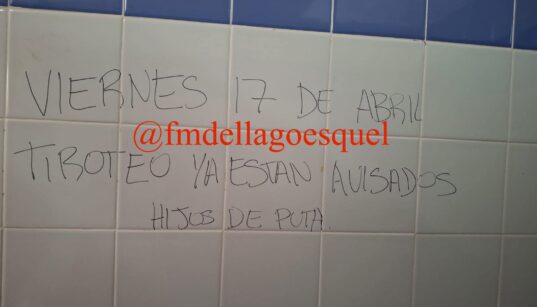 VIERNES 17 DE ABRIL
@fmdellagoesquel
TIROTEO YA ESTAN AVISADOS
HIJOS DE PUTA.